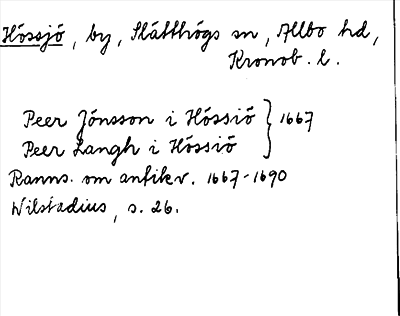 Hössjö, by, Slätthögs sn, Allbo hd,
Kronob. l.
Peer Jönsson i Hössiö } 1667
Peer Langh i Hössiö
Ranns. om antikv. 1667-1690
Wilstadius, s. 26.